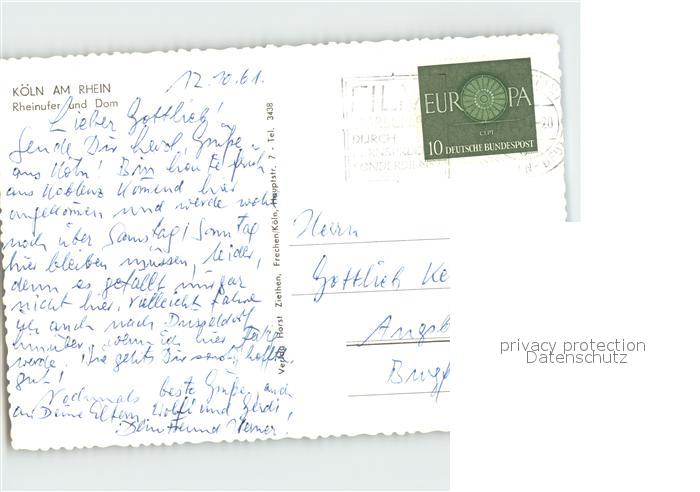 KÖLN AM RHEIN
Rheinufer und Dom
12.10.61.
Lieber Gottlieb!
Sende Dir herzl. Grüße
aus Köln! Bin heute früh
aus Koblenz komend hier
angekommen und werde wohl
noch über Samstag/Sonntag
hier bleiben müssen, leider,
denn es gefällt mir gar
nicht hier, vielleicht fahre
ich auch nach Düsseldorf
hinüber, wenn ich hier
werde. Wie gehts Dir sonst, hoffe
gut!
Nochmals beste Grüße, auch
an Deine Eltern, Wolfi und Gerdi,
Dein Freund Werner.
Verlag Horst Ziethen, Frechen/Köln, Hauptstr. 7 - Tel. 3438
FIL
DURCH
EUROPA
CEPT
10 DEUTSCHE BUNDESPOST
Herrn
Gottlieb Ke
Augsb
privacy protection
Datenschutz